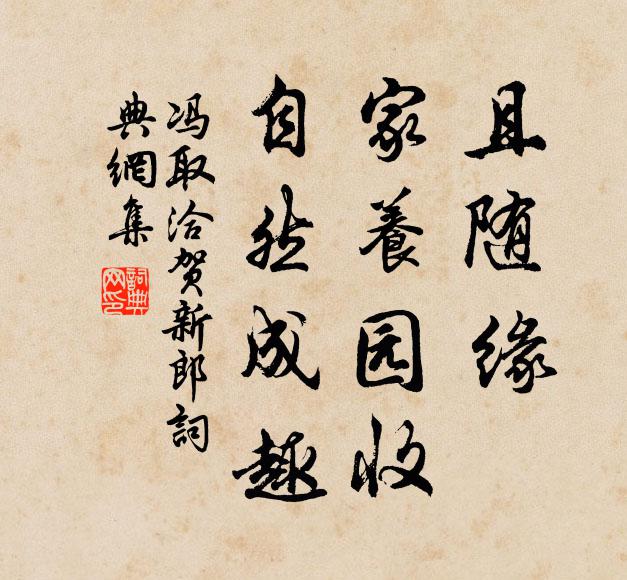 且随缘
家養园收
自然成趣
冯取洽贺新郎詞
典網集
詞典网印